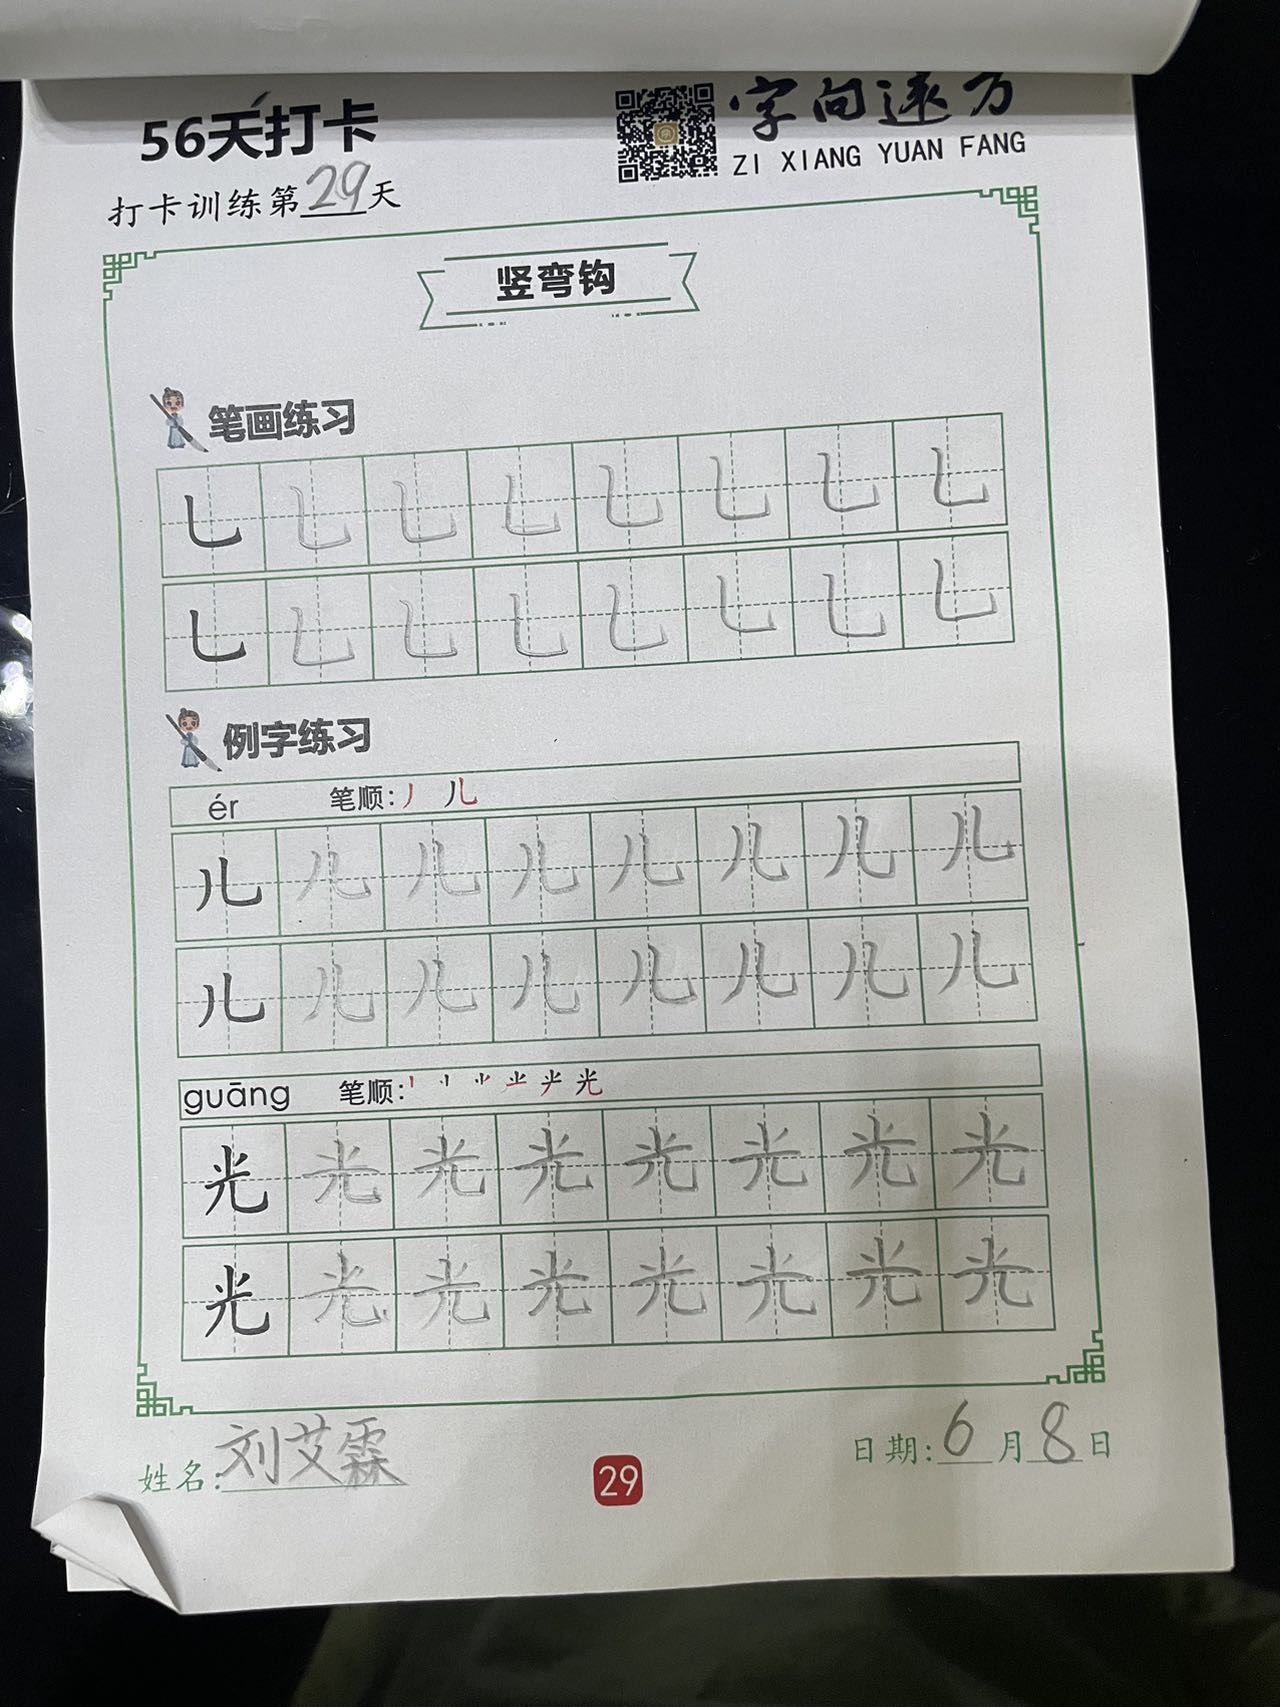 56天打卡
字向远方
ZI XIANG YUAN FANG
打卡训练第29天
竖弯钩
笔画练习
乚 乚 乚 乚 乚 乚 乚 乚
乚 乚 乚 乚 乚 乚 乚 乚
例字练习
ér 笔顺: 丿 儿
儿 儿 儿 儿 儿 儿 儿 儿
儿 儿 儿 儿 儿 儿 儿 儿
guāng 笔顺: 光
光 光 光 光 光 光 光 光
光 光 光 光 光 光 光 光
姓名: 刘艾霖
29
日期: 6月8日